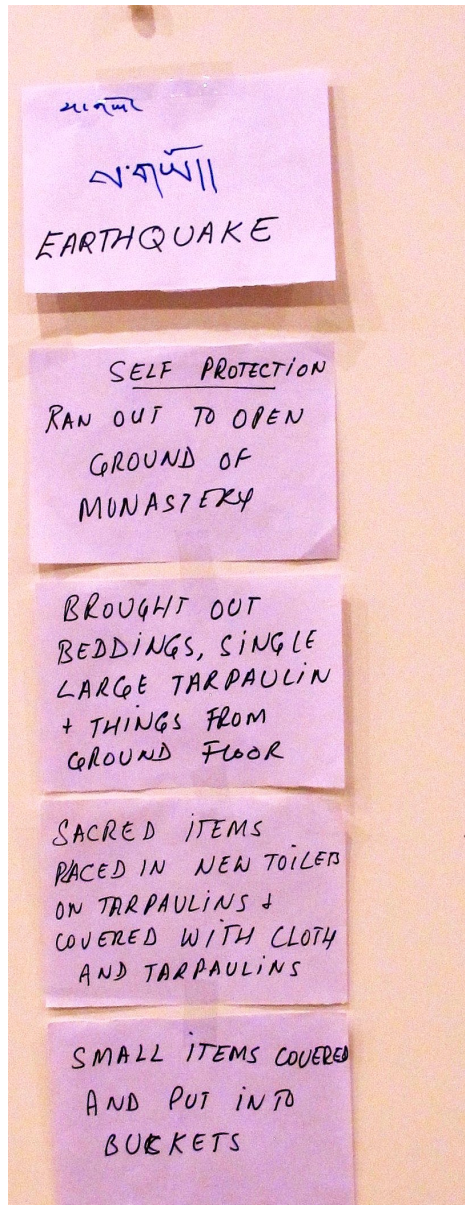 EARTHQUAKE
SELF PROTECTION
RAN OUT TO OPEN
GROUND OF
MONASTERY
BROUGHT OUT
BEDDINGS, SINGLE
LARGE TARPAULIN
+ THINGS FROM
GROUND FLOOR
SACRED ITEMS
PLACED IN NEW TOILETS
ON TARPAULINS &
COVERED WITH CLOTH
AND TARPAULINS
SMALL ITEMS COVERED
AND PUT INTO
BUCKETS